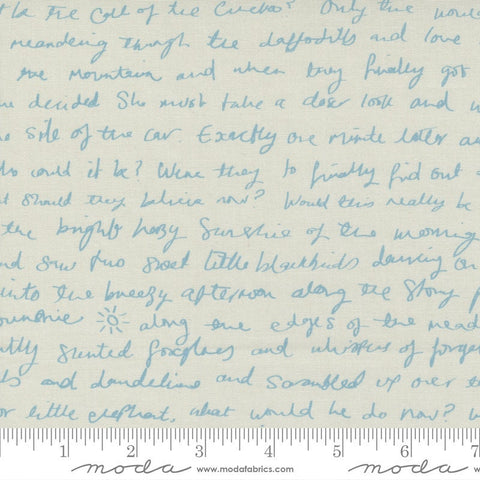 be the Call of the Cuckoo? Only time would
meandering through the daffodills and love
the mountain and when they finally got
decided She must take a closer look and
the side of the car. Exactly one minute later
could it be? Were they to finally find out
should they believe now? Would this really be
the bright hazy Sunshine of the morning
and saw two sweet little blackbirds dancing on
into the breezy afternoon along the Stony
along the edges of the
Scented foxgloves and whispers of
and dandelions and Scrambled up over
little elephant, what would he do now?
1 2 3 4 5 6 7
moda www.modafabrics.com moda